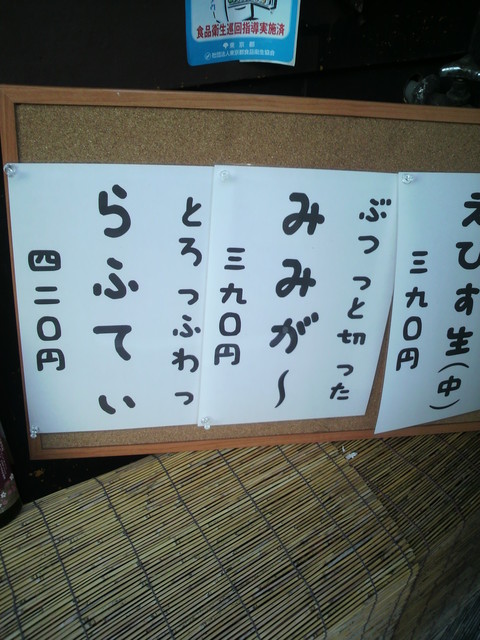 食品衛生巡回指導実施済
えびす生(中)
三九〇円
ぶつっと切った
みみが〜
三九〇円
とろっつふわっ
らふてい
四二〇円